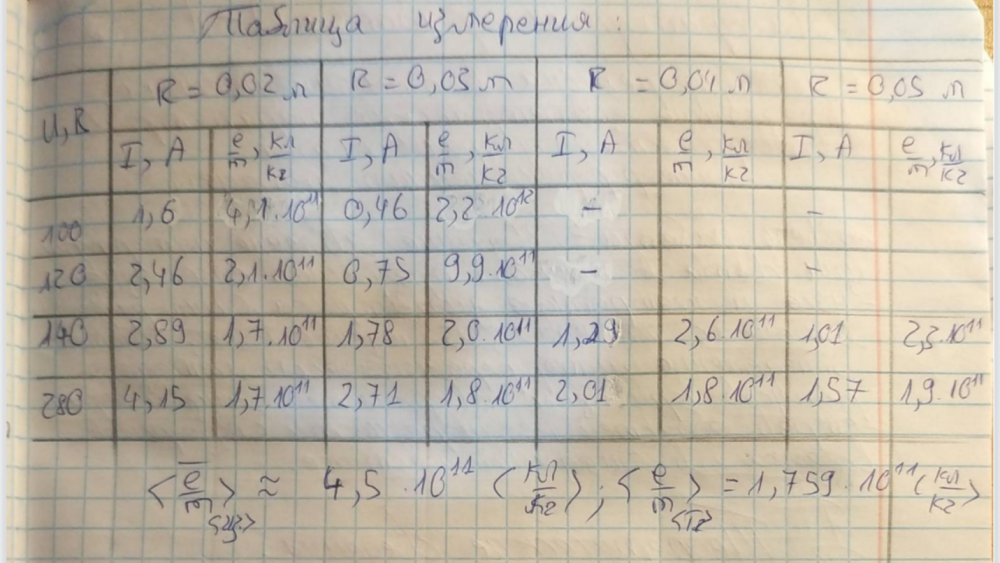 Таблица измерения:
U, В R = 0,02 м R = 0,03 м R = 0,04 м R = 0,05 м
I, А e/m, кл/кг I, А e/m, кл/кг I, А e/m, кл/кг I, А e/m, кл/кг
100 1,6 4,1·10¹¹ 0,46 2,2·10¹² – –
120 2,46 2,1·10¹¹ 0,75 9,9·10¹¹ – –
140 2,89 1,7·10¹¹ 1,78 2,0·10¹¹ 1,29 2,6·10¹¹ 1,01 2,3·10¹¹
280 4,15 1,7·10¹¹ 2,71 1,8·10¹¹ 2,01 1,8·10¹¹ 1,57 1,9·10¹¹
<e/m> ≈ 4,5·10¹¹ (кл/кг); <e/m> = 1,759·10¹¹ (кл/кг)